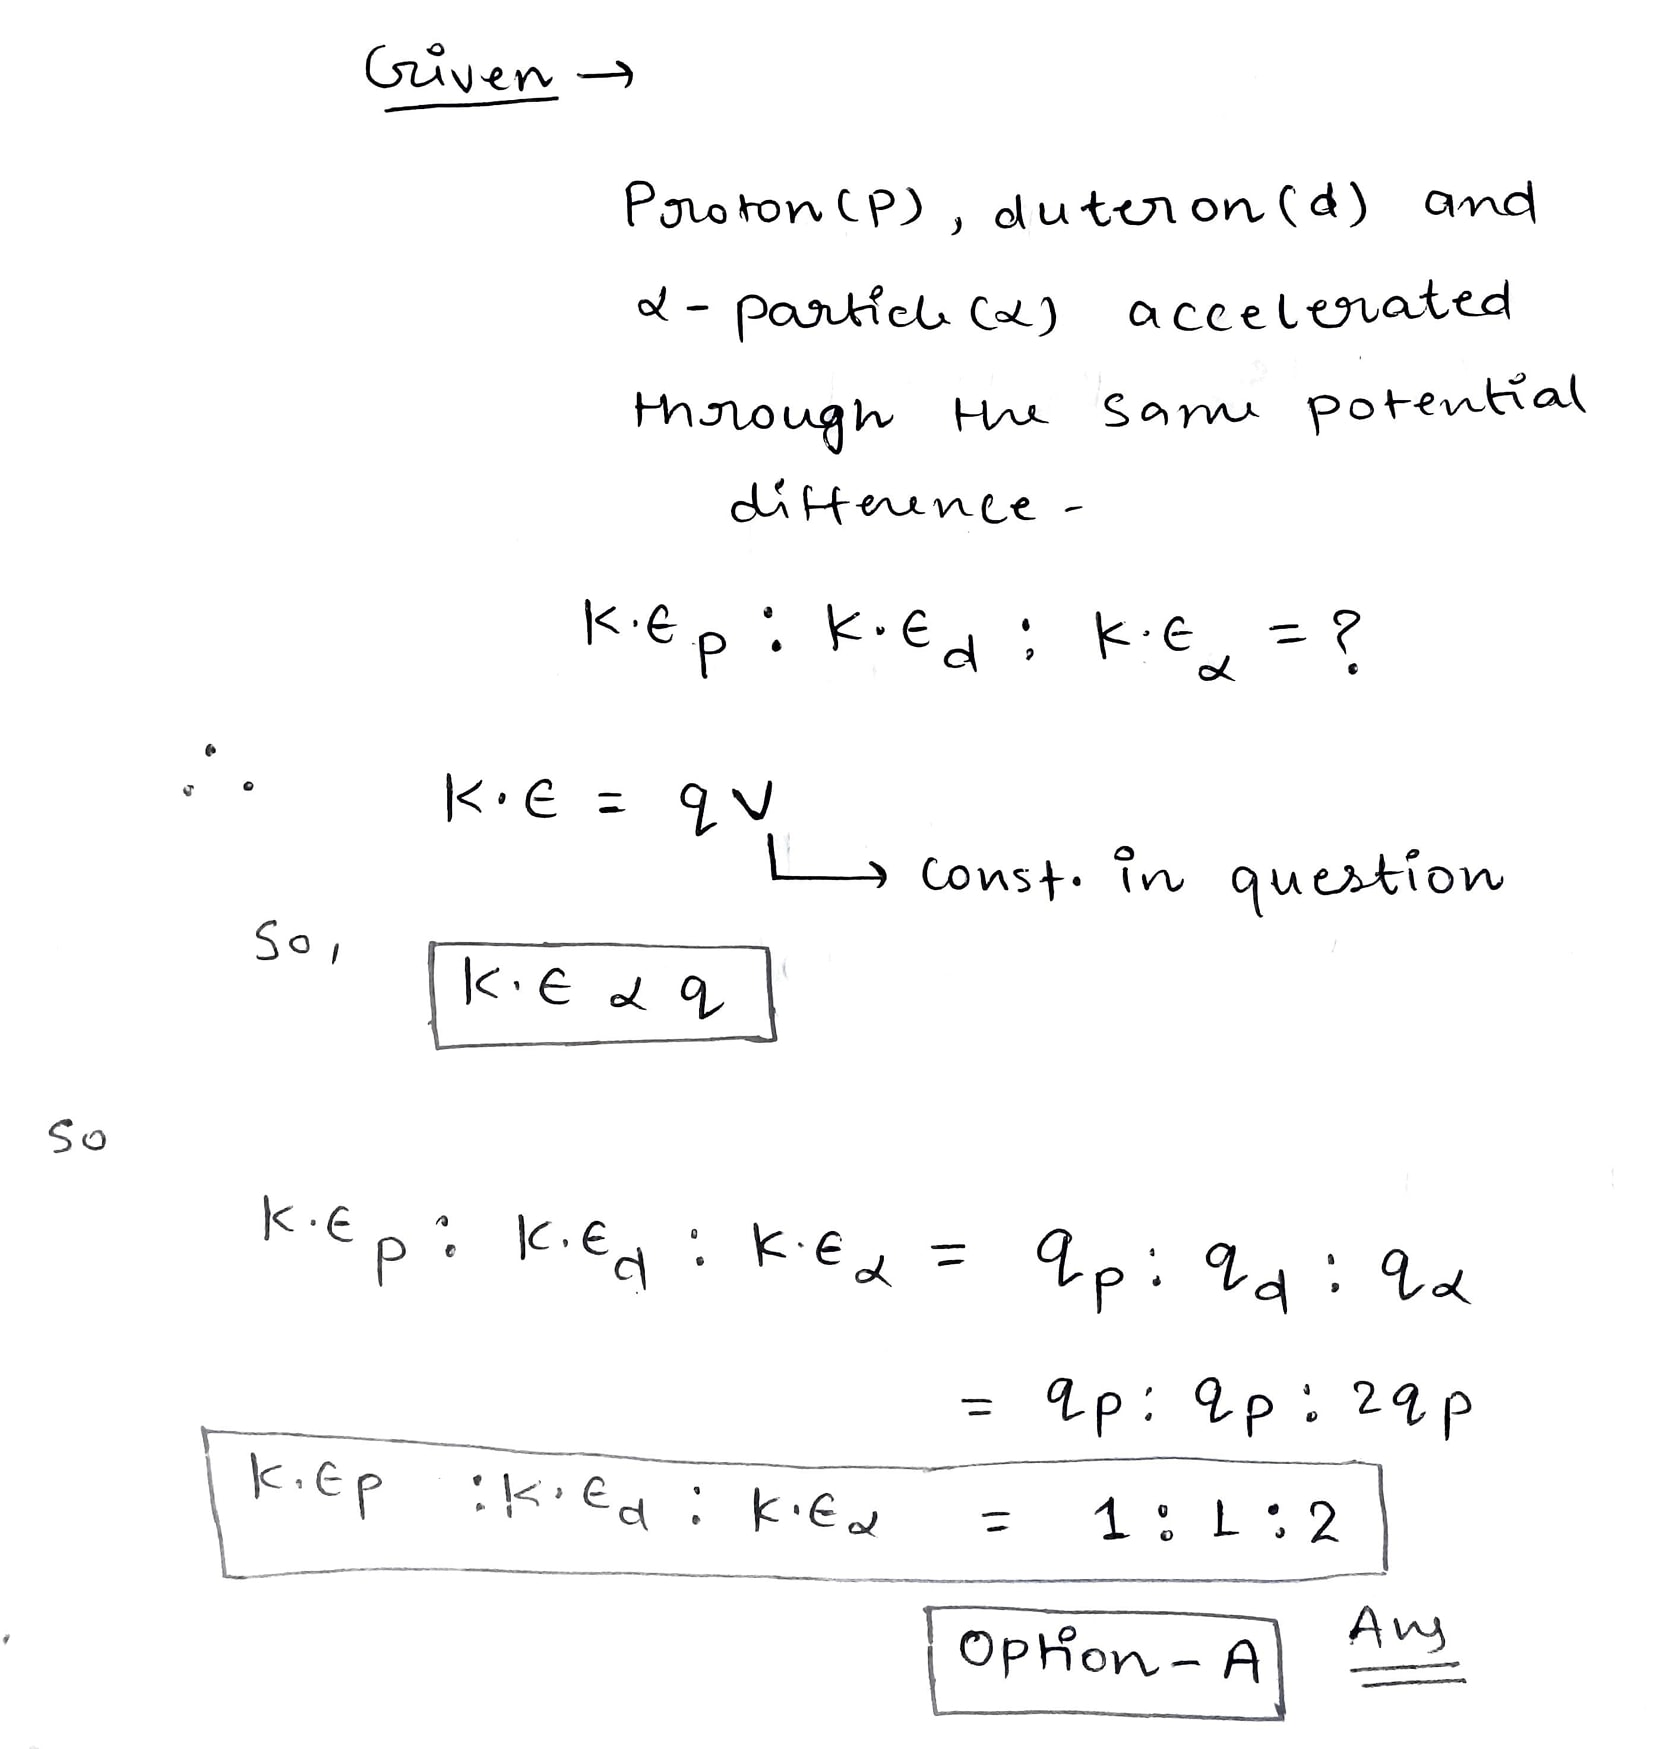 Given →
Proton (P), duteron (d) and
α - particle (α) accelerated
through the same potential
difference -
K.E_p : K.E_d : K.E_α = ?
∴ K.E = qV
↳ const. in question
So, K.E α q
So
K.E_p : K.E_d : K.E_α = q_p : q_d : q_α
= q_p : q_p : 2q_p
K.E_p : K.E_d : K.E_α = 1 : 1 : 2
Option - A Ans